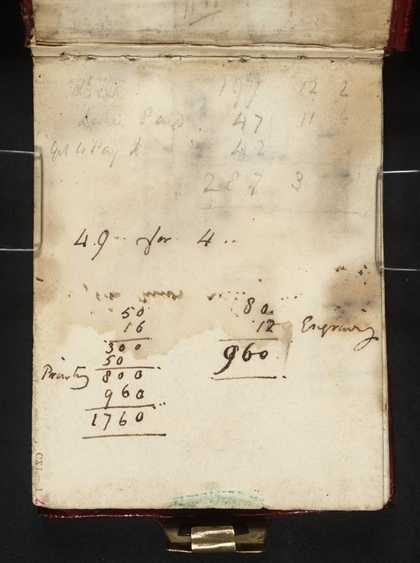 197 12 2
47 11 6
Got to Pay
287 3
49 for 4
50
16
300
50
Printing 800
960
1760
80
12 Engraving
960